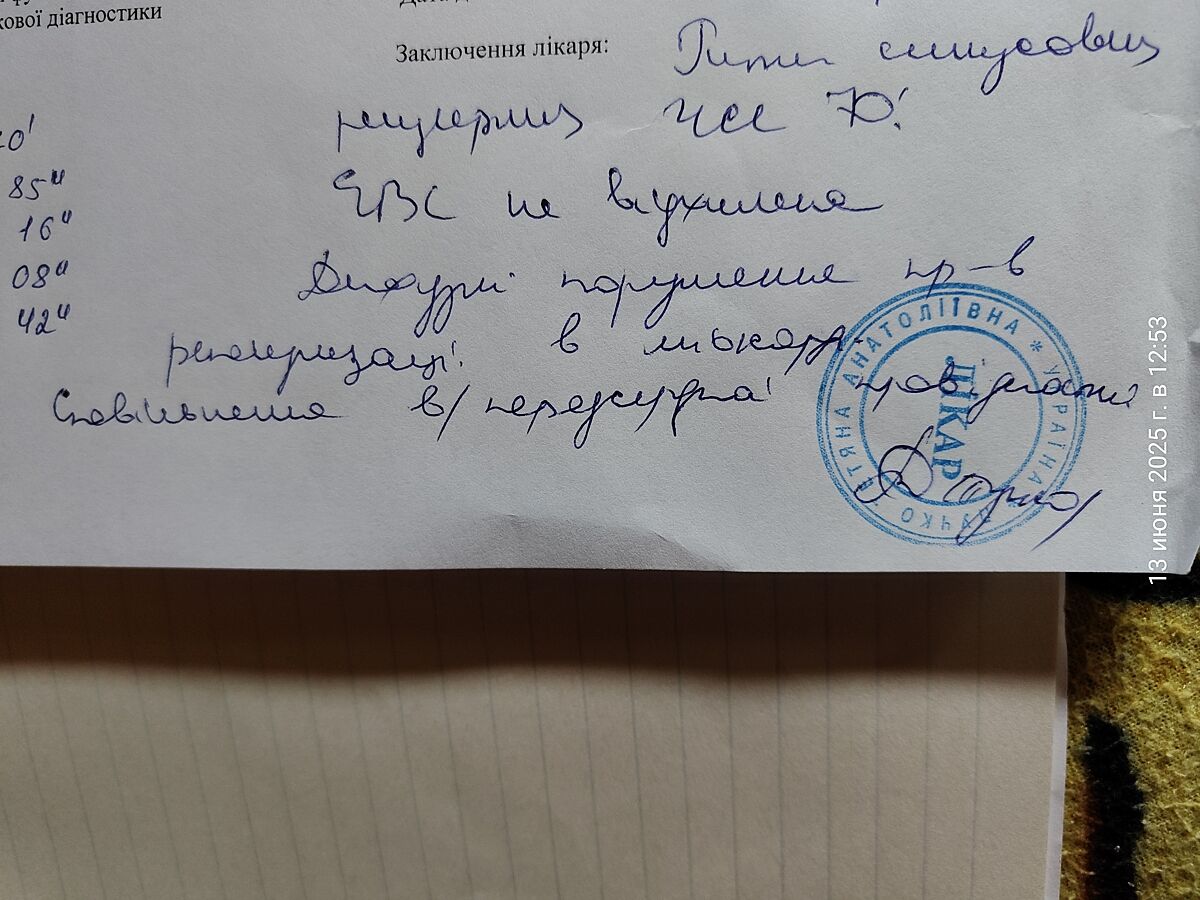 кової діагностики
Заключення лікаря: Ритм синусовий
регулярний ЧСС 70'.
85"
ЕВС не відхилена
16"
08"
Дифузні порушення пр-в
42"
реполяризації в міокарді.
Сповільнення в/передсердної провідності
ТЕТЯНА АНАТОЛІЇВНА * УКРАЇНА *
ЛІКАР
13 июня 2025 г. в 12:53